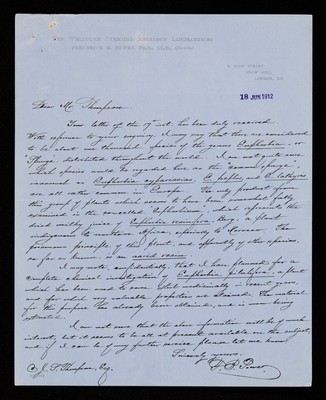 THE WELLCOME CHEMICAL RESEARCH LABORATORIES
FREDERICK B. POWER, PH.D., LL.D., Director
6, KING STREET
SNOW HILL
LONDON, E.C.
18 JUN 1912
Dear Mr. Thompson
Your letter of the 17th inst. has been duly received.
With reference to your enquiry I may say that there are considered
to be about one thousand species of the genus Euphorbia, or
"Spurge", distributed throughout the world. I am not quite sure
which species would be regarded here as the "common spurge",
inasmuch as Euphorbia cyparissias, E. peplus, and E. lathyris
are all rather common in Europe. The only product from
this group of plants which seems to have been somewhat fully
examined is the so-called "Euphorbium", which represents the
dried milky juice of Euphorbia resinifera, Berg, a plant
indigenous to northern Africa, especially to Morocco. The
poisonous principle of this plant, and apparently of other species,
so far as known, is an acrid resin.
I may note, confidentially, that I have planned for a
complete chemical investigation of Euphorbia pilulifera, a plant
which has been used to some extent medicinally in recent years,
and for which very valuable properties are claimed. The material
for this purpose has already been obtained, and is now being
extracted.
I am not sure that the above information will be of much
interest, but it seems to be all at present available on the subject,
and if I can be of any further service please let me know.
Sincerely yours,
F. B. Power
J. Thompson, Esq.